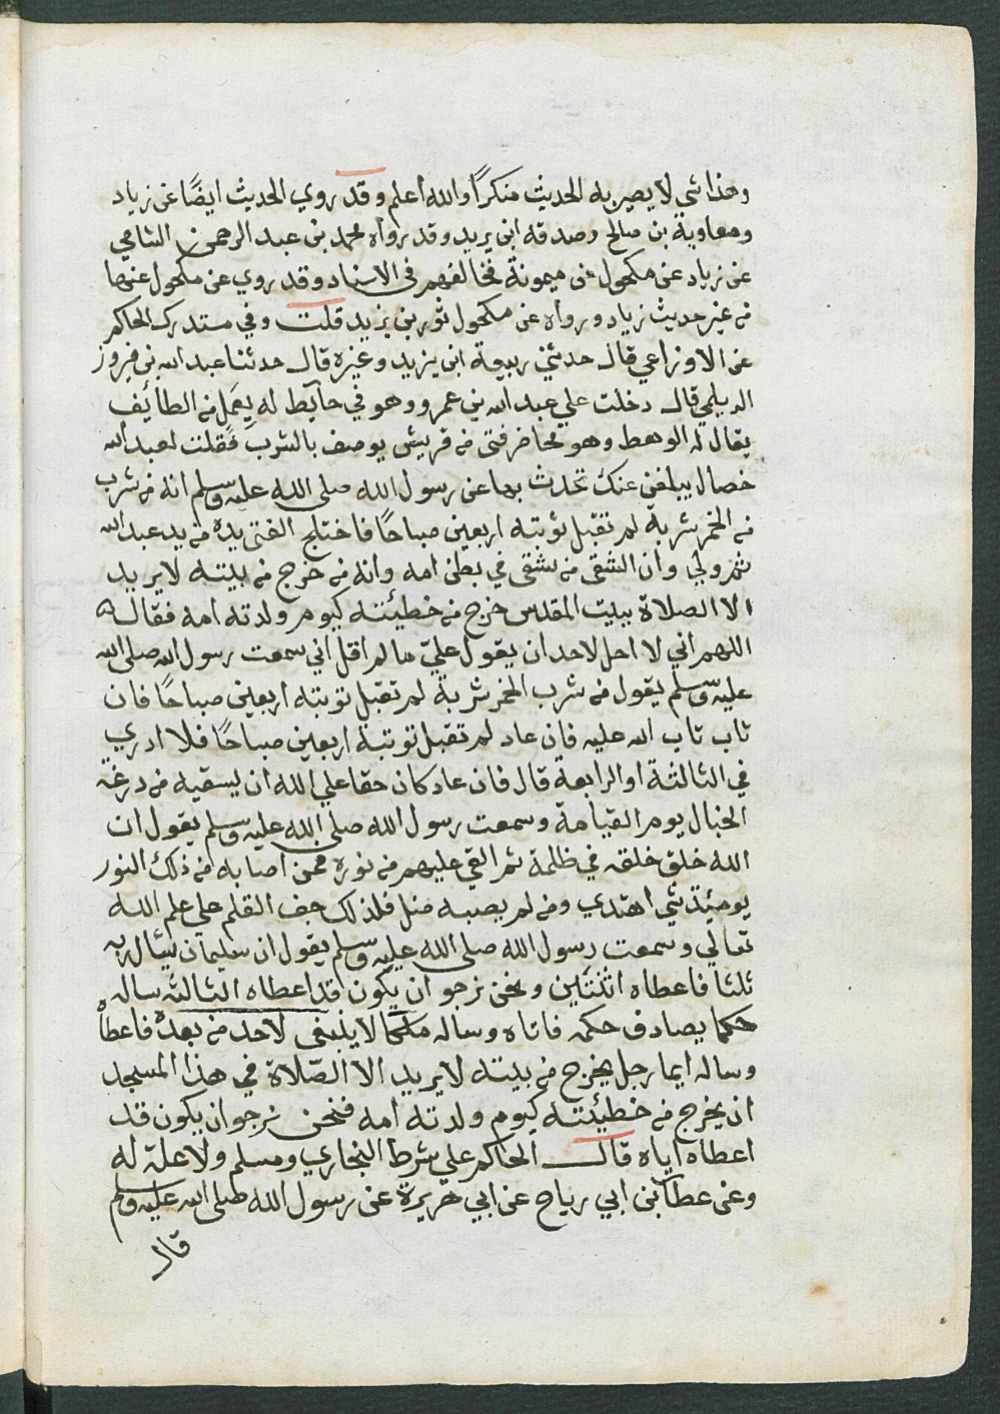 وهذا شي لا يصير به الحديث منكراً والله اعلم وقد روي الحديث ايضًا عن زياد
ومعاوية بن صالح وصدقه ابن يزيد وقد رواه محمد بن عبد الرحمن الشامي
عن زياد عن مكحول عن ميمونة فخالفهم في الاسناد وقد روي عن مكحول عنها
من غير حديث زياد ورواه عن مكحول ثور بن يزيد قلت وفي مستدرك الحاكم
عن الاوزاعي قال حدثني ربيعة ابن يزيد وغيره قال حدثنا عبد الله بن فيروز
الديلمي قال دخلت علي عبد الله بن عمرو وهو في حايط له بالطائف
يقال له الوهط وهو محاضر فتى من قريش يوصف بالشرب فقلت لعبد الله
خصال يبلغني عنك تحدث بها عن رسول الله صلى الله عليه وسلم انه من شرب
من الخمر شربة لم تقبل توبته اربعين صباحًا فاختلج الفتى يده من يد عبد الله
ثم ولي وان الشقى من شقى في بطن امه وانه من خرج من بيته لا يريد
الا الصلاة ببيت المقدس خرج من خطيئته كيوم ولدته امه فقال
اللهم اني لا احل لاحد ان يقول عليّ ما لم اقل اني سمعت رسول الله صلى الله
عليه وسلم يقول من شرب الخمر شربة لم تقبل توبته اربعين صباحًا فان
تاب تاب الله عليه فان عاد لم تقبل توبتة اربعين صباحًا فلا ادري
في الثالثة او الرابعة قال فان عاد كان حقا علي الله ان يسقيه من درغة
الخبال يوم القيامة وسمعت رسول الله صلى الله عليه وسلم يقول ان
الله خلق خلقه في ظلمة ثم القي عليهم من نوره فمن اصابه من ذلك النور
يومئذ شي اهتدي ومن لم يصبه ضل فلذلك جف القلم علي علم الله
تعالي وسمعت رسول الله صلى الله عليه وسلم يقول ان سليمان سال ربه
ثلثا فاعطاه اثنتين ونحن نرجو ان يكون قد اعطاه الثالثه ساله
حكما يصادف حكمه فاتاه وساله ملكا لا ينبغي لاحد من بعده فاعطاه
وساله ايما رجل يخرج من بيته لا يريد الا الصّلاة في هذا المسجد
ان يخرج من خطيئته كيوم ولدته امه فنحن نرجو ان يكون قد
اعطاه اياه قال الحاكم علي شرط البخاري ومسلم ولا علة له
وعن عطا بن ابي رباح عن ابي هريرة عن رسول الله صلى الله عليه وسلم
قال